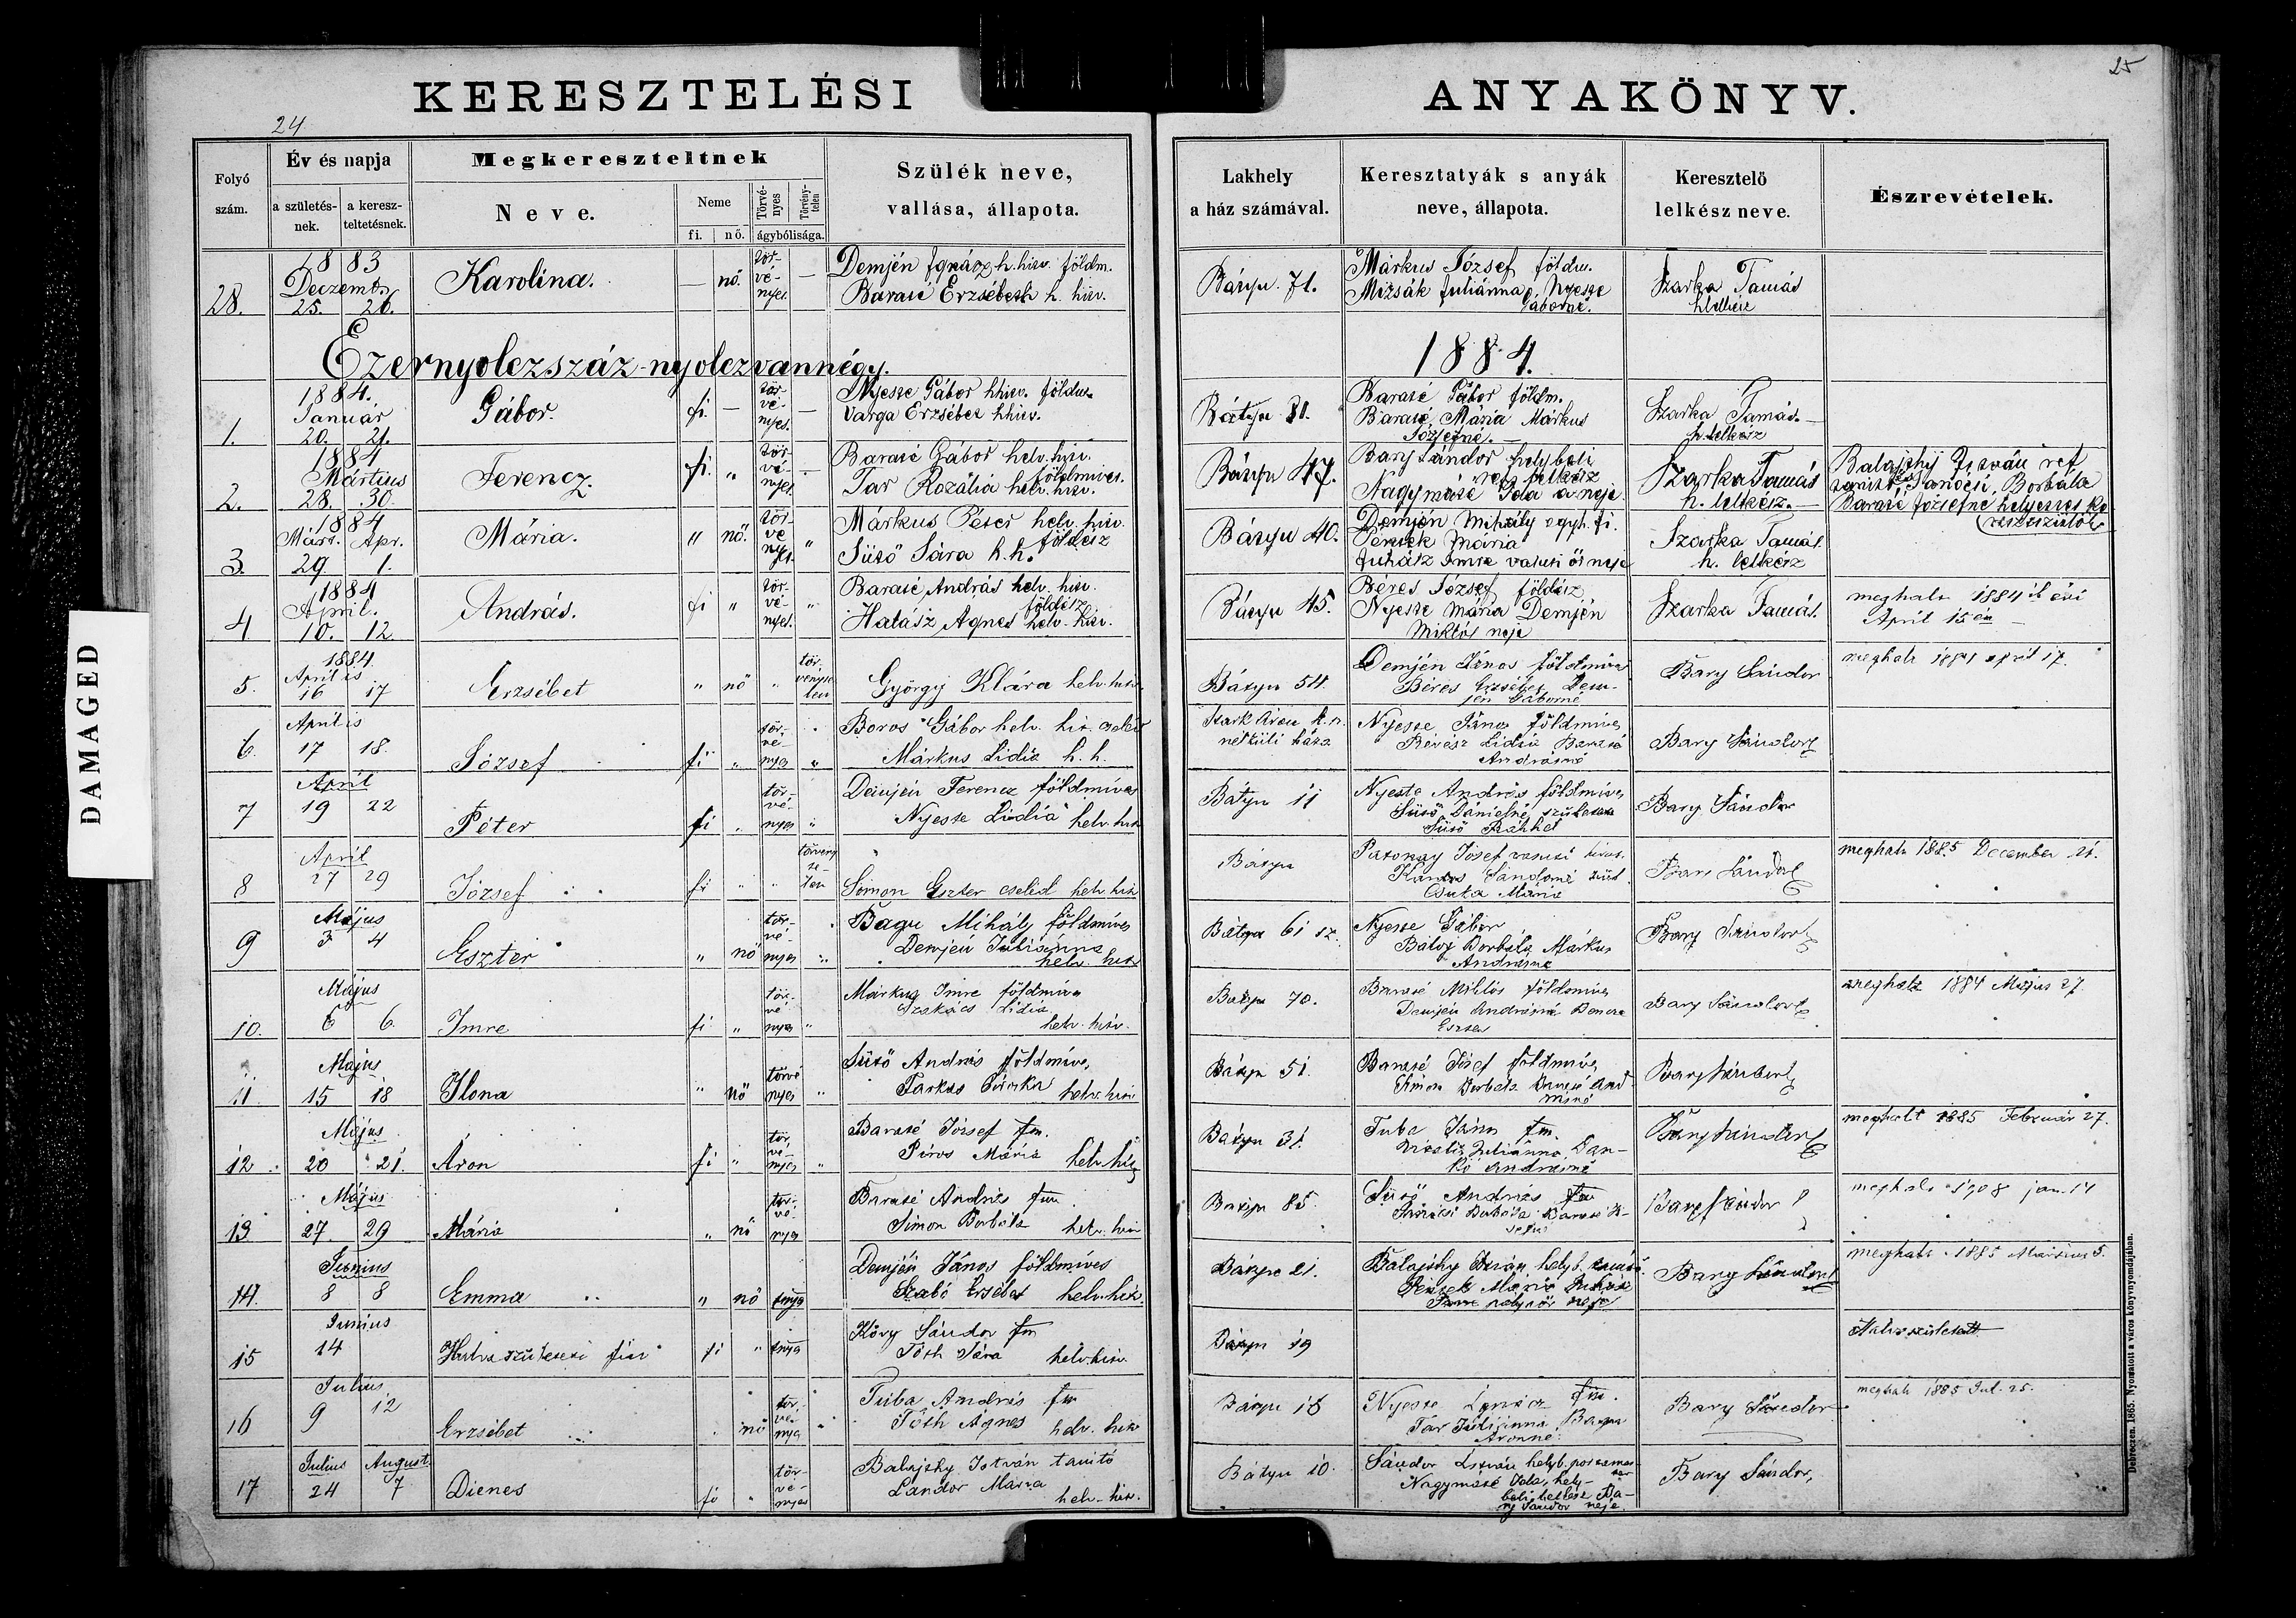 KERESZTELÉSI
ANYAKÖNYV.
24
25
DAMAGED
Folyó szám.
Év és napja
a születés-nek.
a keresz-teltetésnek.
Megkereszteltnek
Neve.
Neme
fi.
nő.
Törvé-nyes
Törvény-telen
ágybólisága.
Szülék neve,
vallása, állapota.
Lakhely
a ház számával.
Keresztatyák s anyák
neve, állapota.
Keresztelő
lelkész neve.
Észrevételek.
1883
28. Deczemb. 25. 26. Karolina. — nő. tör-vé-nyes. —
Demjén Ignácz h. hitv. földm.
Baraté Erzsébeth h. hitv.
Bátyu. 71.
Márkus József földm.
Mizsák Juliánna, Nyeste
Gáborné.
Szarka Tamás
h. lelkész
Ezernyolczszáz-nyolczvannégy.
1884.
1884.
1. Január 20. 21. Gábor. fi. — tör-vé-nyes. —
Nyeste Gábor hhitv. földm.
Varga Erzsébet hhitv.
Bátyu 81.
Baraté Gábor földm.
Baraté Mária Márkus
Józsefné. —
Szarka Tamás. —
h. lelkész
1884
2. Mártius 28. 30. Ferencz. fi. „ tör-vé-nyes. —
Baraté Gábor helv. hitv.
földmives.
Tar Rozália helv. hitv.
Bátyu 47.
Bary Sándor helybeli
ref. lelkész
Nagymáté Ida a neje
Szarka Tamás
h. lelkész. —
Balajthy István ref
tanító Jánócsi Borbála
Baraté Józsefné helyettes ke
resztszülők
1884
3. Márt. Apr. 29. 1. Mária. „ nő. tör-vé-nyes. „
Márkus Péter helv. hitv.
földész
Sütő Sára h. h.
Bátyu 40.
Demjén Mihály egyh. fi.
Péntek Mária
Juhász Imre vasuti őr neje
Szarka Tamás.
h. lelkész
1884
4 April. 10. 12. András. fi „ tör-vé-nyes. „
Baraté András helv. hitv.
földész
Halász Ágnes helv. hitv.
Bátyu 45.
Béres József földész
Nyeste Mária Demjén
Miklós neje
Szarka Tamás.
meghalt 1884ik évi
April 15én —
1884.
5. Aprilis 16 17 Erzsébet „ nő „ tör-vényte-len
György Klára helv. hitv.
Bátyu 54.
Demjén János földmíves
Béres Erzsébet Dem-
jén Gáborné
Bary Sándor
meghalt 1884 april 17.
6. Aprilis 17 18. József fi „ tör-vé-nyes „
Boros Gábor helv. hit. cseléd
Márkus Lidia h. h.
nélküli háza
Nyeste János földmíves
Révész Lidia Baraté
Andrásné
Bary Sándor
7 April 19 22 Péter fi „ tör-vé-nyes „
Demjén Ferencz földmíves
Nyeste Lidia helv. hitv
Bátyu 11
Nyeste András földmíves
Sütő Dánielné született
Sütő Ráhhel
Bary Sándor
8 April 27 29 József fi „ „ törvény-te-len
Simon Eszter cseléd helv. hitv
Bátyu
Patonay József vasuti
Sándorné szül.
Csuka Mária
Bary Sándor
meghalt 1885 December 21.
9 Május 3 4 Eszter „ nő tör-vé-nyes „
Bagu Mihály földmíves
Demjén Juliánna
helv. hitv
Bátyu 61 sz.
Nyeste Gábor
Bátor Borbála Márkus
Andrásné
Bary Sándor
10. Május 6 6 Imre fi „ tör-vé-nyes „
Márkus Imre földmíves
Szakács Lidia
helv. hitv.
Bátyu 70.
Baraté Miklós földmíves
Demjén Andrásné
Eszter
Bary Sándor
meghalt 1884 Május 27.
11 Május 15 18 Ilona „ nő törvé-nyes „
Sütő András földmíves
Farkas helv. hitv
Bátyu 51.
Baraté József földmíves
Simon Borbála Baraté And
rásné
Bary Sándor
12. Május 20 21. Áron fi „ tör-vé-nyes „
Baraté József fm.
Piros Mária helv. hitv
Bátyu 31.
Tuba János fm.
Juliánna Dan-
kó Andrásné
Bary Sándor
meghalt 1885 Február 27.
13 Május 27. 29 Mária „ nő tör-vé-nyes
Baraté András fm.
Simon Borbála helv. hitv
Bátyu 85.
Sütő András fm
Borbála Baraté
Bary Sándor
meghalt 1908 jan. 14
14. Junius 8 8 Emma „ nő tnyes
Demjén János földmíves
Szabó Erzsébet helv. hitv.
Bátyu 21.
Balajthy István helyb. tanító
Péntek Mária Juhász
Imre neje
Bary Sándor
meghalt 1885 Martius 5.
15 Junius 14 Halva született fiu fi „ tnyes
Kövy Sándor fm
Tóth Sára helv. hitv.
Bátyu 19
Halva született
16 Julius 9 12 Erzsébet „ nő tör-vé-nyes „
Tuba András fm
Tóth Ágnes helv. hitv
Bátyu 16
Nyeste Ignácz fm.
Tar Juliánna Bagu
Áronné.
Bary Sándor
meghalt 1885 Jul. 25.
17 Julius August. 24 7 Dienes fi „ tör-vé-nyes
Balajthy István tanító
Sándor Mária
helv. hitv.
Bátyu 10.
Sándor István helyb. postames
ter
Nagymáté Ida, hely-
beli lelkész Ba-
ry Sándor neje.
Bary Sándor,
Debreczen. 1865. Nyomatott a város könyvnyomdájában.